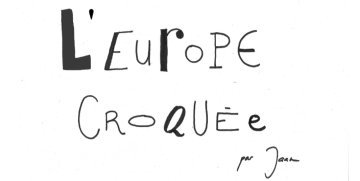 L'EUROPE
CROQUÉE
par